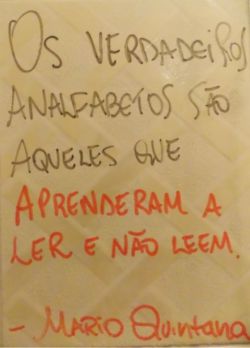 OS VERDADEIROS
ANALFABETOS SÃO
AQUELES QUE
APRENDERAM A
LER E NÃO LEEM.
- MARIO QUINTANA